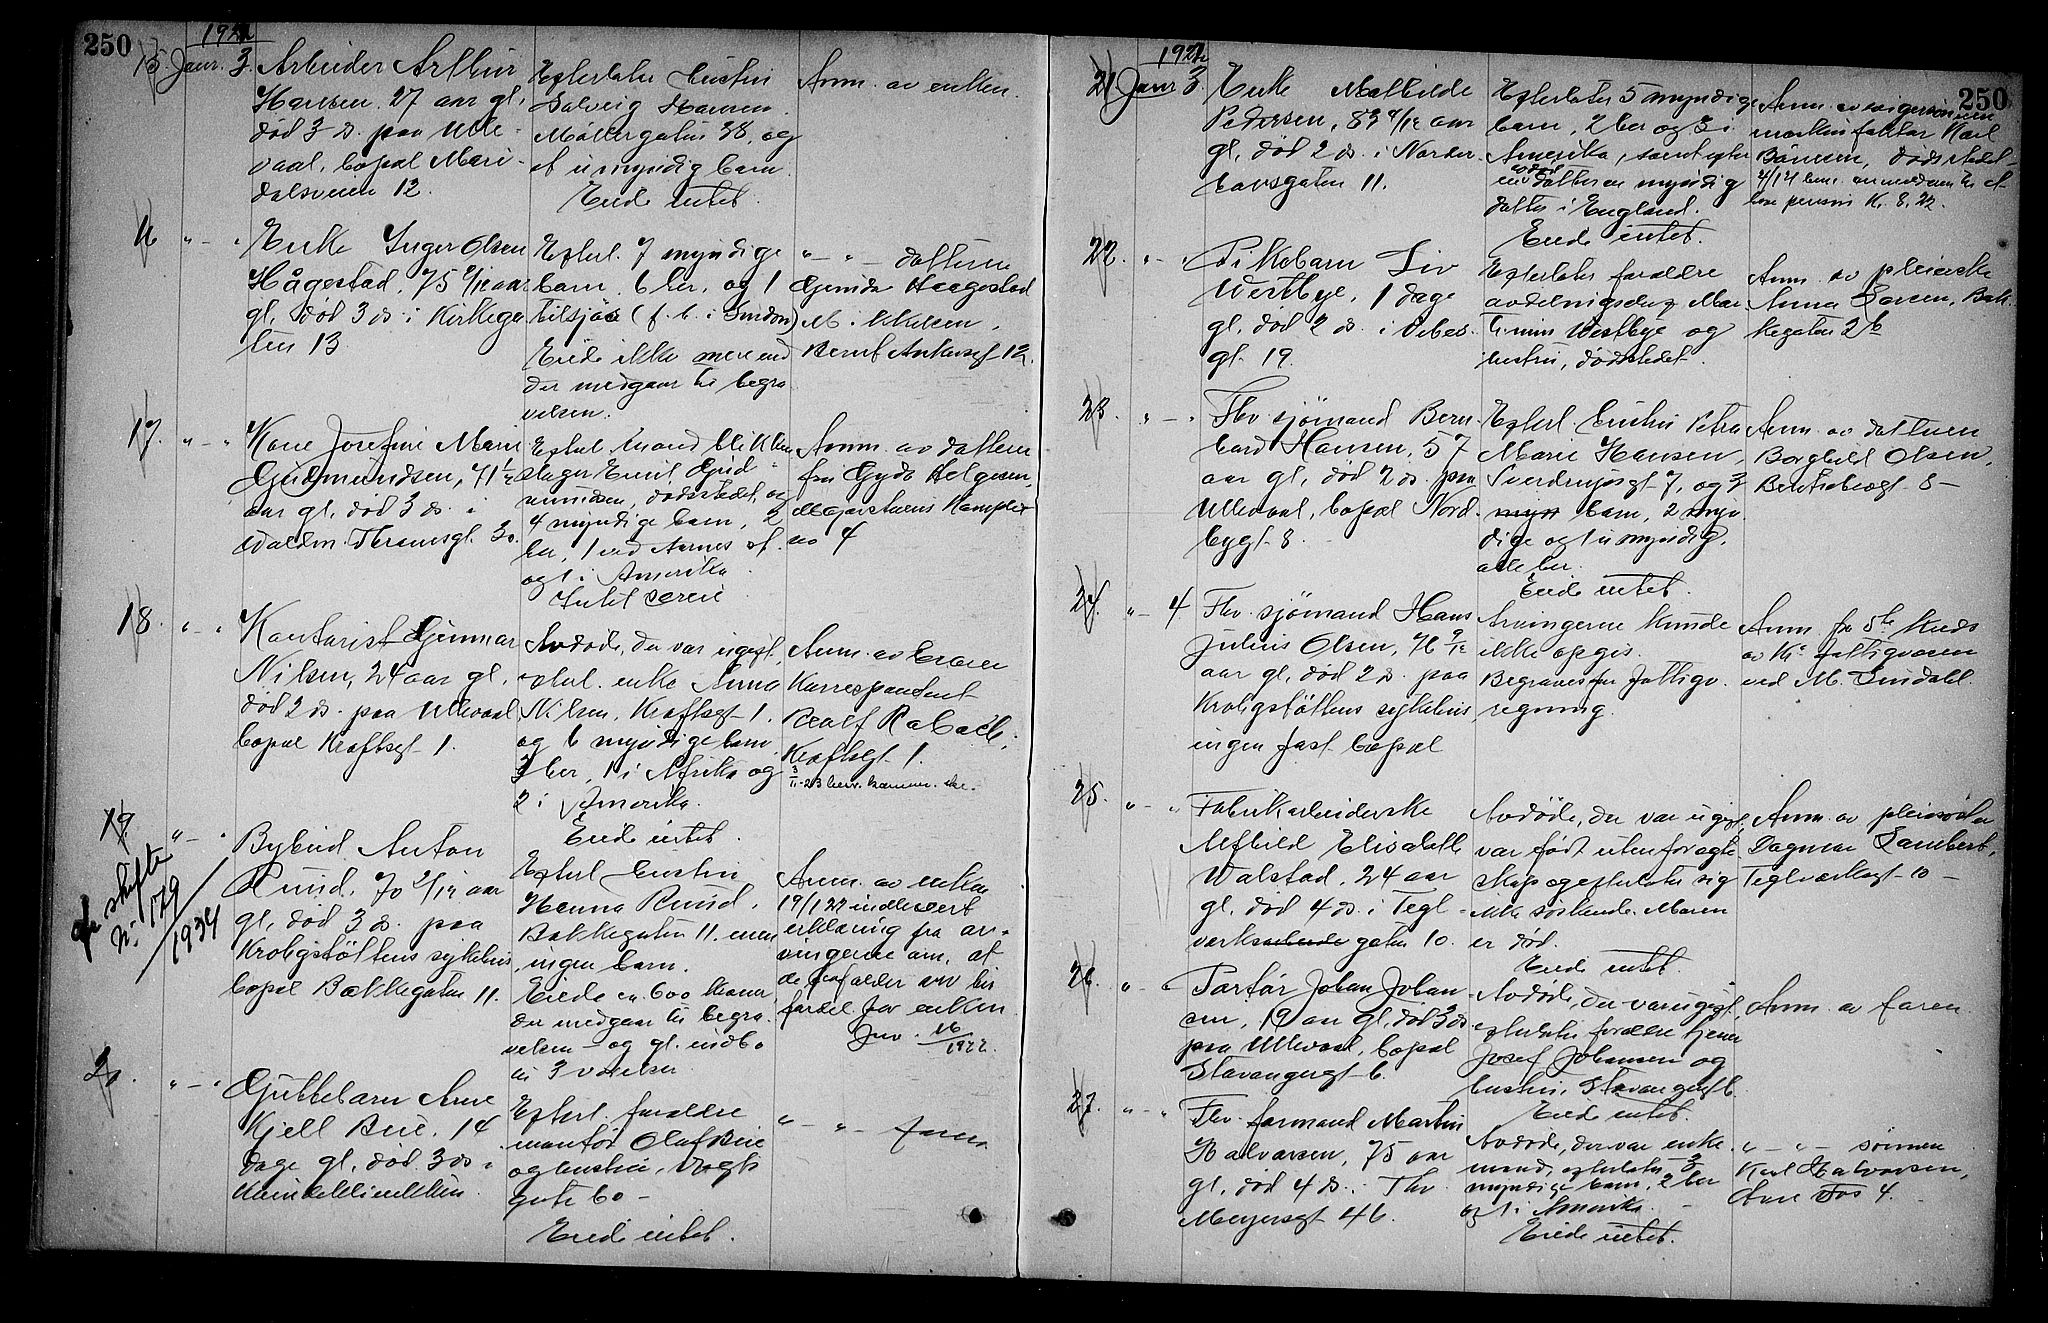 250
1922
15. Janr. 3. Arbeider Arthur
Hansen, 27 aar gl,
död 3 ds. paa Ulle-
vaal, bopæl Mari-
dalsveien 12.
Efterlater hustru
Solveig Hansen
Möllergaten 38, og
et umyndig barn.
Eiede intet.
Anm. av enken.
16 " - " Enke Inger Olsen
Hågestad, 75 aar
gl, död 3 ds. i Kirkega
ten 13.
Efterl. 7 myndige
barn, 6 her, og 1
tilsjös (f. t. i London)
Eiede ikke mere end
der medgaar til begra
velsen.
" - " - datteren
Haagestad
Bernt Ankersgt 12.
17. " - " Kone Josefine Marie
Gudmundsen, 71
aar gl, död 3 ds. i
Waldm. Thranesgt. 30.
Efterl. mand blikken
slager Emil Gud-
mundsen, dödsstedet, og
4 myndige barn, 2
her, 1 ved Aarnes st.
og 1 i Amerika.
Intet særeie
Anm. av datteren
fru Gyda Helgesen,
no 4
18. " - " Kontorist Gunnar
Nilsen, 24 aar gl,
död 2 ds. paa Ullevaal
bopæl Kraftsgt 1.
Avdöde, der var ugift,
efterl. enke Anna
Nilsen, Kraftsgt 1.
og 6 myndige barn
3 her, 1 i Afrika og
2 i Amerika.
Eiede intet.
Anm. av
Korrespondent
Kraftsgt. 1.
19. " - " Bybud Anton
Rund, 70 2/12 aar
gl, död 3 ds. paa
Krohgstöttens sykehus
bopæl Bakkegaten 11.
skifte
No 179
1934
Efterl. hustru
Hanna Rund,
Bakkegaten 11. men
ingen barn.
Eiede ca 600 kroner,
der medgaar til begra
velsen - og gl. indbo
til 3 værelser.
Anm. av enken
19/1 22 indlevert
erklæring fra ar-
vingerne om, at
de frafalder arv
fordel for enken
16
1922.
20. " - " Guttebarn Arne
Kjell Bue, 14
dage gl, död 3 ds i
Kvindeklinikken.
Efterl. forældre
montör Olaf Bue
og hustru, Vogts
gate 60 -
Eiede intet.
" - " - faren.
250
1922
21 Janr 3. Enke Mathilde
Pedersen, 83 4/12 aar
gl, död 2 ds. i Norder-
hovsgaten 11.
Efterlater 5 myndige
barn, 2 her og 3 i
Amerika, samt efter
en avdöd datter en myndig
datter i England.
Eiede intet.
Anm. av svigersönnen
maskinfaktor Karl
dödsstedet
22. " - " Pikebarn Liv
Westbye, 1 dage
gl, död 2 ds. i Vibes
gt. 19.
Efterlater forældre
Westbye og
hustru, dödsstedet.
Anm. av pleierske
Anna Larsen, Bak
kegaten 2 b
23. " - " Fhv. sjömand Bern
hard Hansen, 57
aar gl, död 2 ds. paa
Ullevaal, bopæl Nord-
bygt 8.
Efterl. hustru Petra
Marie Hansen,
Sverdrupsgt 7, og 3
barn, 2 myn
dige og 1 umyndig,
alle her.
Eiede intet.
Anm. av datteren
Borghild Olsen,
24. " - 4. Fhv. sjömand Hans
Julius Olsen, 76 9/12
aar gl, död 2 ds. paa
Krohgstöttens sykehus
ingen fast bopæl
Arvingerne kunde
ikke opgis.
Begraves for fattigv.
regning.
Anm. fra 5te kreds
av Kr. fattigvæsen
ved M. Lindahl.
25. " - " Fabrikarbeiderske
Alfhild Elisabeth
Walstad, 24 aar
gl, död 4 ds. i Tegl-
verks gaten 10.
Avdöde, der var ugift,
var födt utenfor egte
skap og efterlater sig
ikke söskende. Moren
er död.
Eiede intet.
Anm. av pleiesöster
Dagmar Lambert,
Teglverksgt 10 -
26. " - " Portör Johan Johan
sen, 19 aar gl, död 3 ds
paa Ullevaal, bopæl
Stavangergt 6.
Avdöde, der var ugift,
efterlater forældre
Josef Johansen og
hustru, Stavangergt 6.
Eiede intet.
Anm. av faren.
27. " - " Fhv. formand Martin
Halvorsen, 75 aar
gl, död 4 ds. i Thv.
Meyersgt 46.
Avdöde, der var enke
mand, efterlater 3
myndige barn, 2 her
og 1 i Amerika.
Eiede intet.
" - " - sönnen
Karl Halvorsen,
Foss 4.